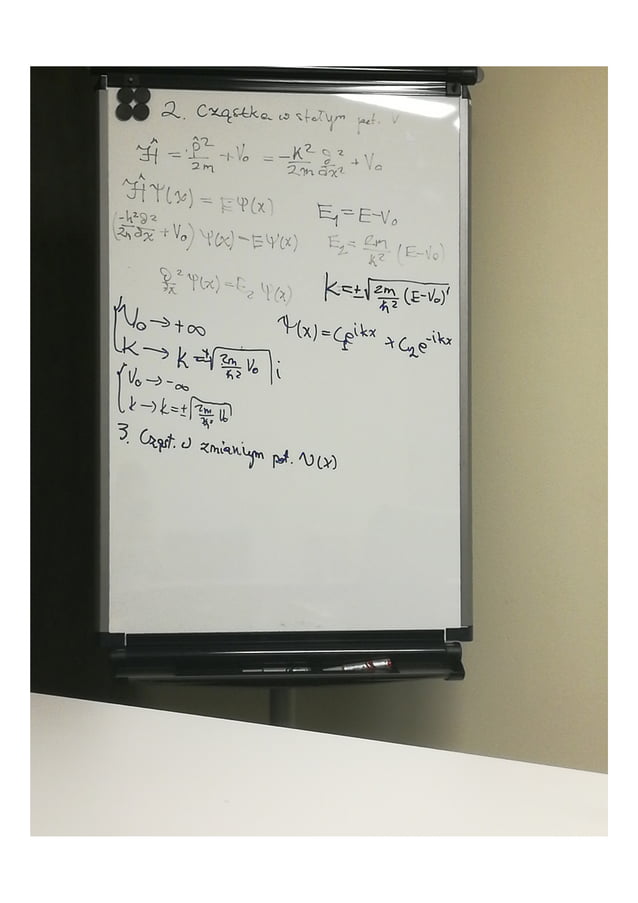 2. Cząstka w stałym pot. V
Ĥ = p̂²/2m + V₀ = -ħ²/2m ∂²/∂x² + V₀
Ĥ Ψ(x) = E Ψ(x)
E₁ = E-V₀
(-ħ²∂²/2m∂x + V₀) Ψ(x) = EΨ(x)
E₂ = 2m/ħ² (E-V₀)
∂²/∂x Ψ(x) = E₂ Ψ(x)
k = ±√(2m/ħ² (E-V₀))
V₀ → +∞
Ψ(x) = C₁e^ikx + C₂e^-ikx
k → k = ±√(2m/ħ² V₀) i
V₀ → -∞
k → k = ±√(2m/ħ² V₀)
3. Cząst. w zmianiym pot. V(x)